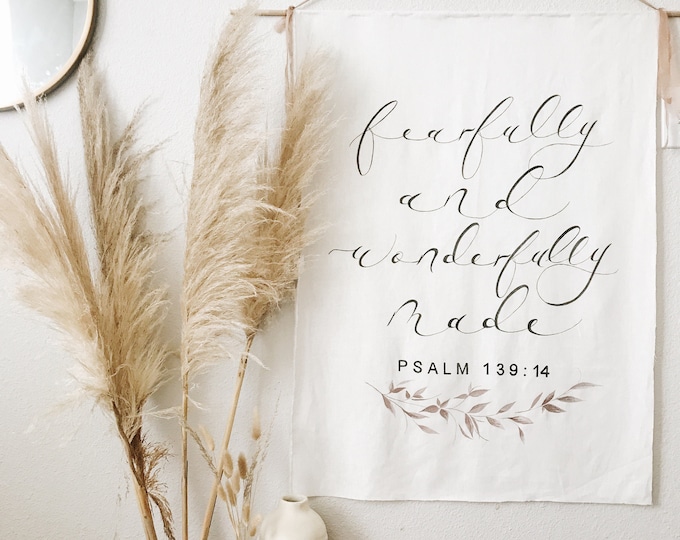 fearfully
and
wonderfully
made
PSALM 139:14